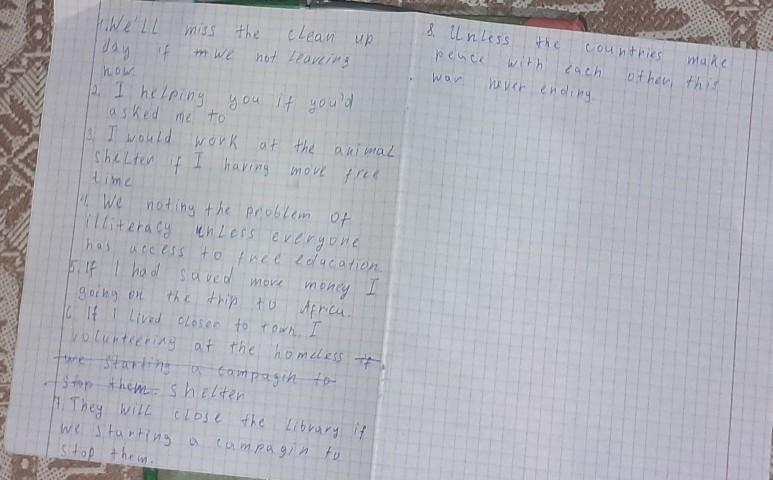 1. We'll miss the clean up
day if we not leaveing
now.
2. I helping you if you'd
asked me to
3. I would work at the animal
shelter if I having move free
time
4. We noting the problem of
illiteracy unless everyone
has access to free education.
5. If I had saved move money I
going on the trip to Africa.
6. If I lived closer to town, I
volunteering at the homeless if
we starting a campagin to
stop them. shelter
7. They will close the library if
we starting a campagin to
stop them.
8. Unless the countries make
peace with each other, this
war never ending.